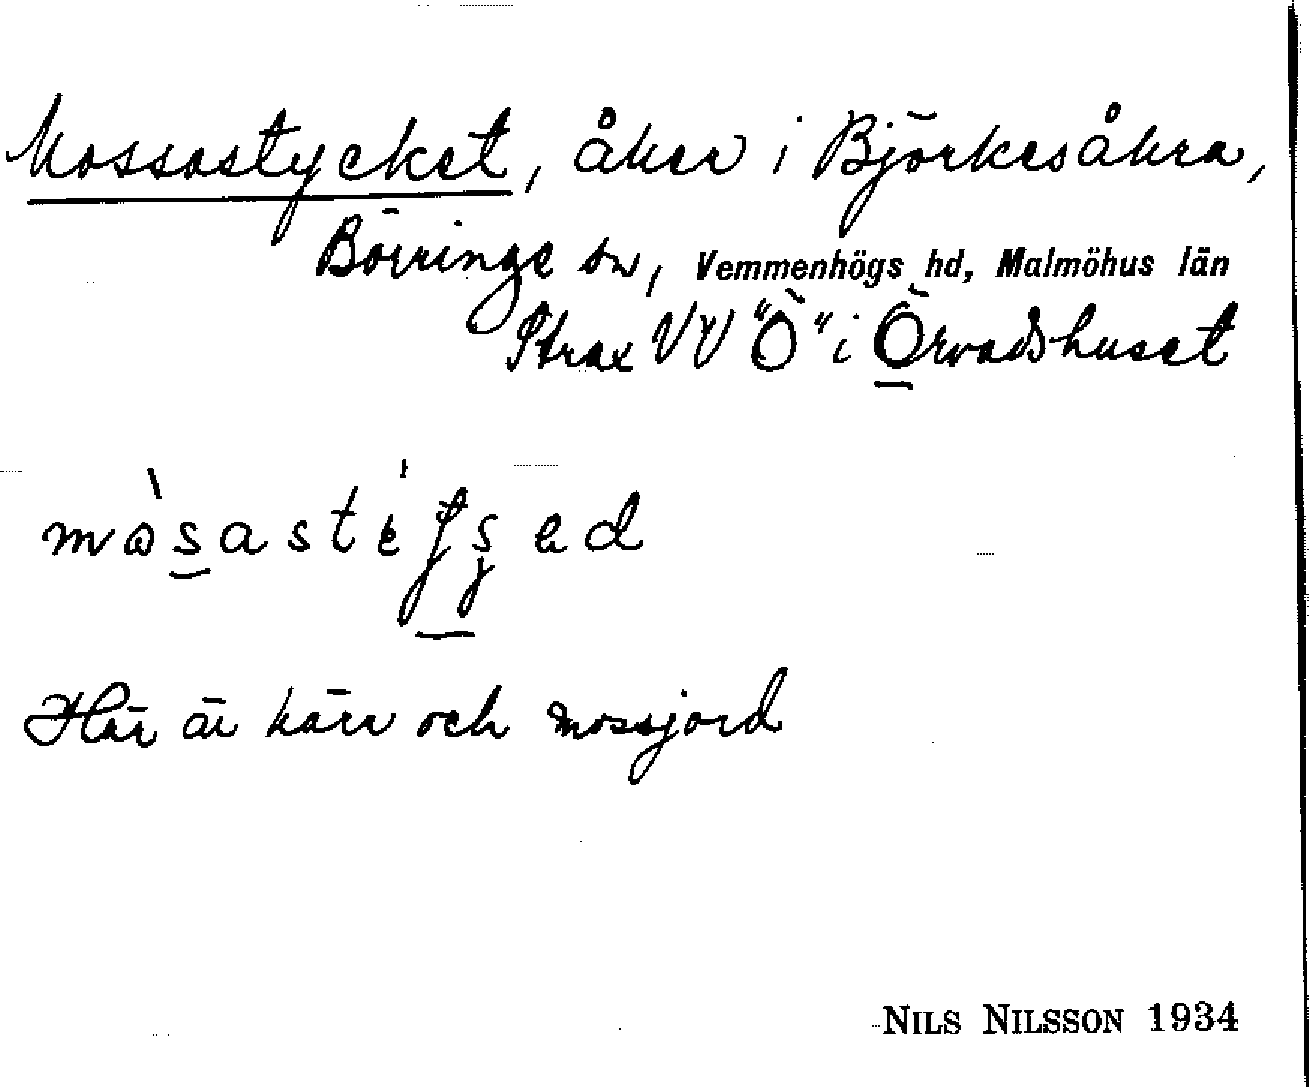 Mossastycket, åker i Björkesåkra,
Börringe sn, Vemmenhögs hd, Malmöhus län
Strax VV "Ö" i Örvadshuset
Här är kärr och mossjord
NILS NILSSON 1934